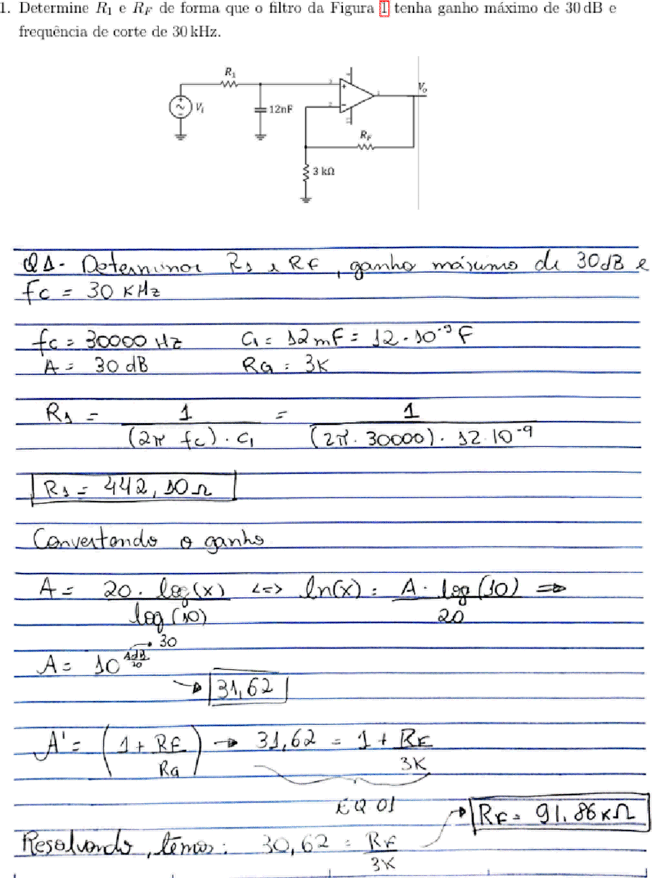 1. Determine R1 e RF de forma que o filtro da Figura 1 tenha ganho máximo de 30 dB e
frequência de corte de 30 kHz.
R1
Vi
12nF
3
2
1
11
Vo
RF
3 kΩ
Q1- Determinar R1 e RF, ganho máximo de 30dB e
fc = 30 KHz
fc = 30000 Hz C1 = 12nF = 12·10⁻⁹F
A = 30 dB RG = 3K
R1 = 1 / (2π fc)·C1 = 1 / (2π·30000)·12·10⁻⁹
R1 = 442,10Ω
Convertendo o ganho
A = 20·log(x) / log(10) <=> ln(x) = A·log(10) / 20 =>
A = 10^(AdB/20) → 30
→ 31,62
A' = (1 + RF/RG) → 31,62 = 1 + RF/3K
EQ 01
→ RF = 91,86KΩ
Resolvendo, temos: 30,62 = RF/3K